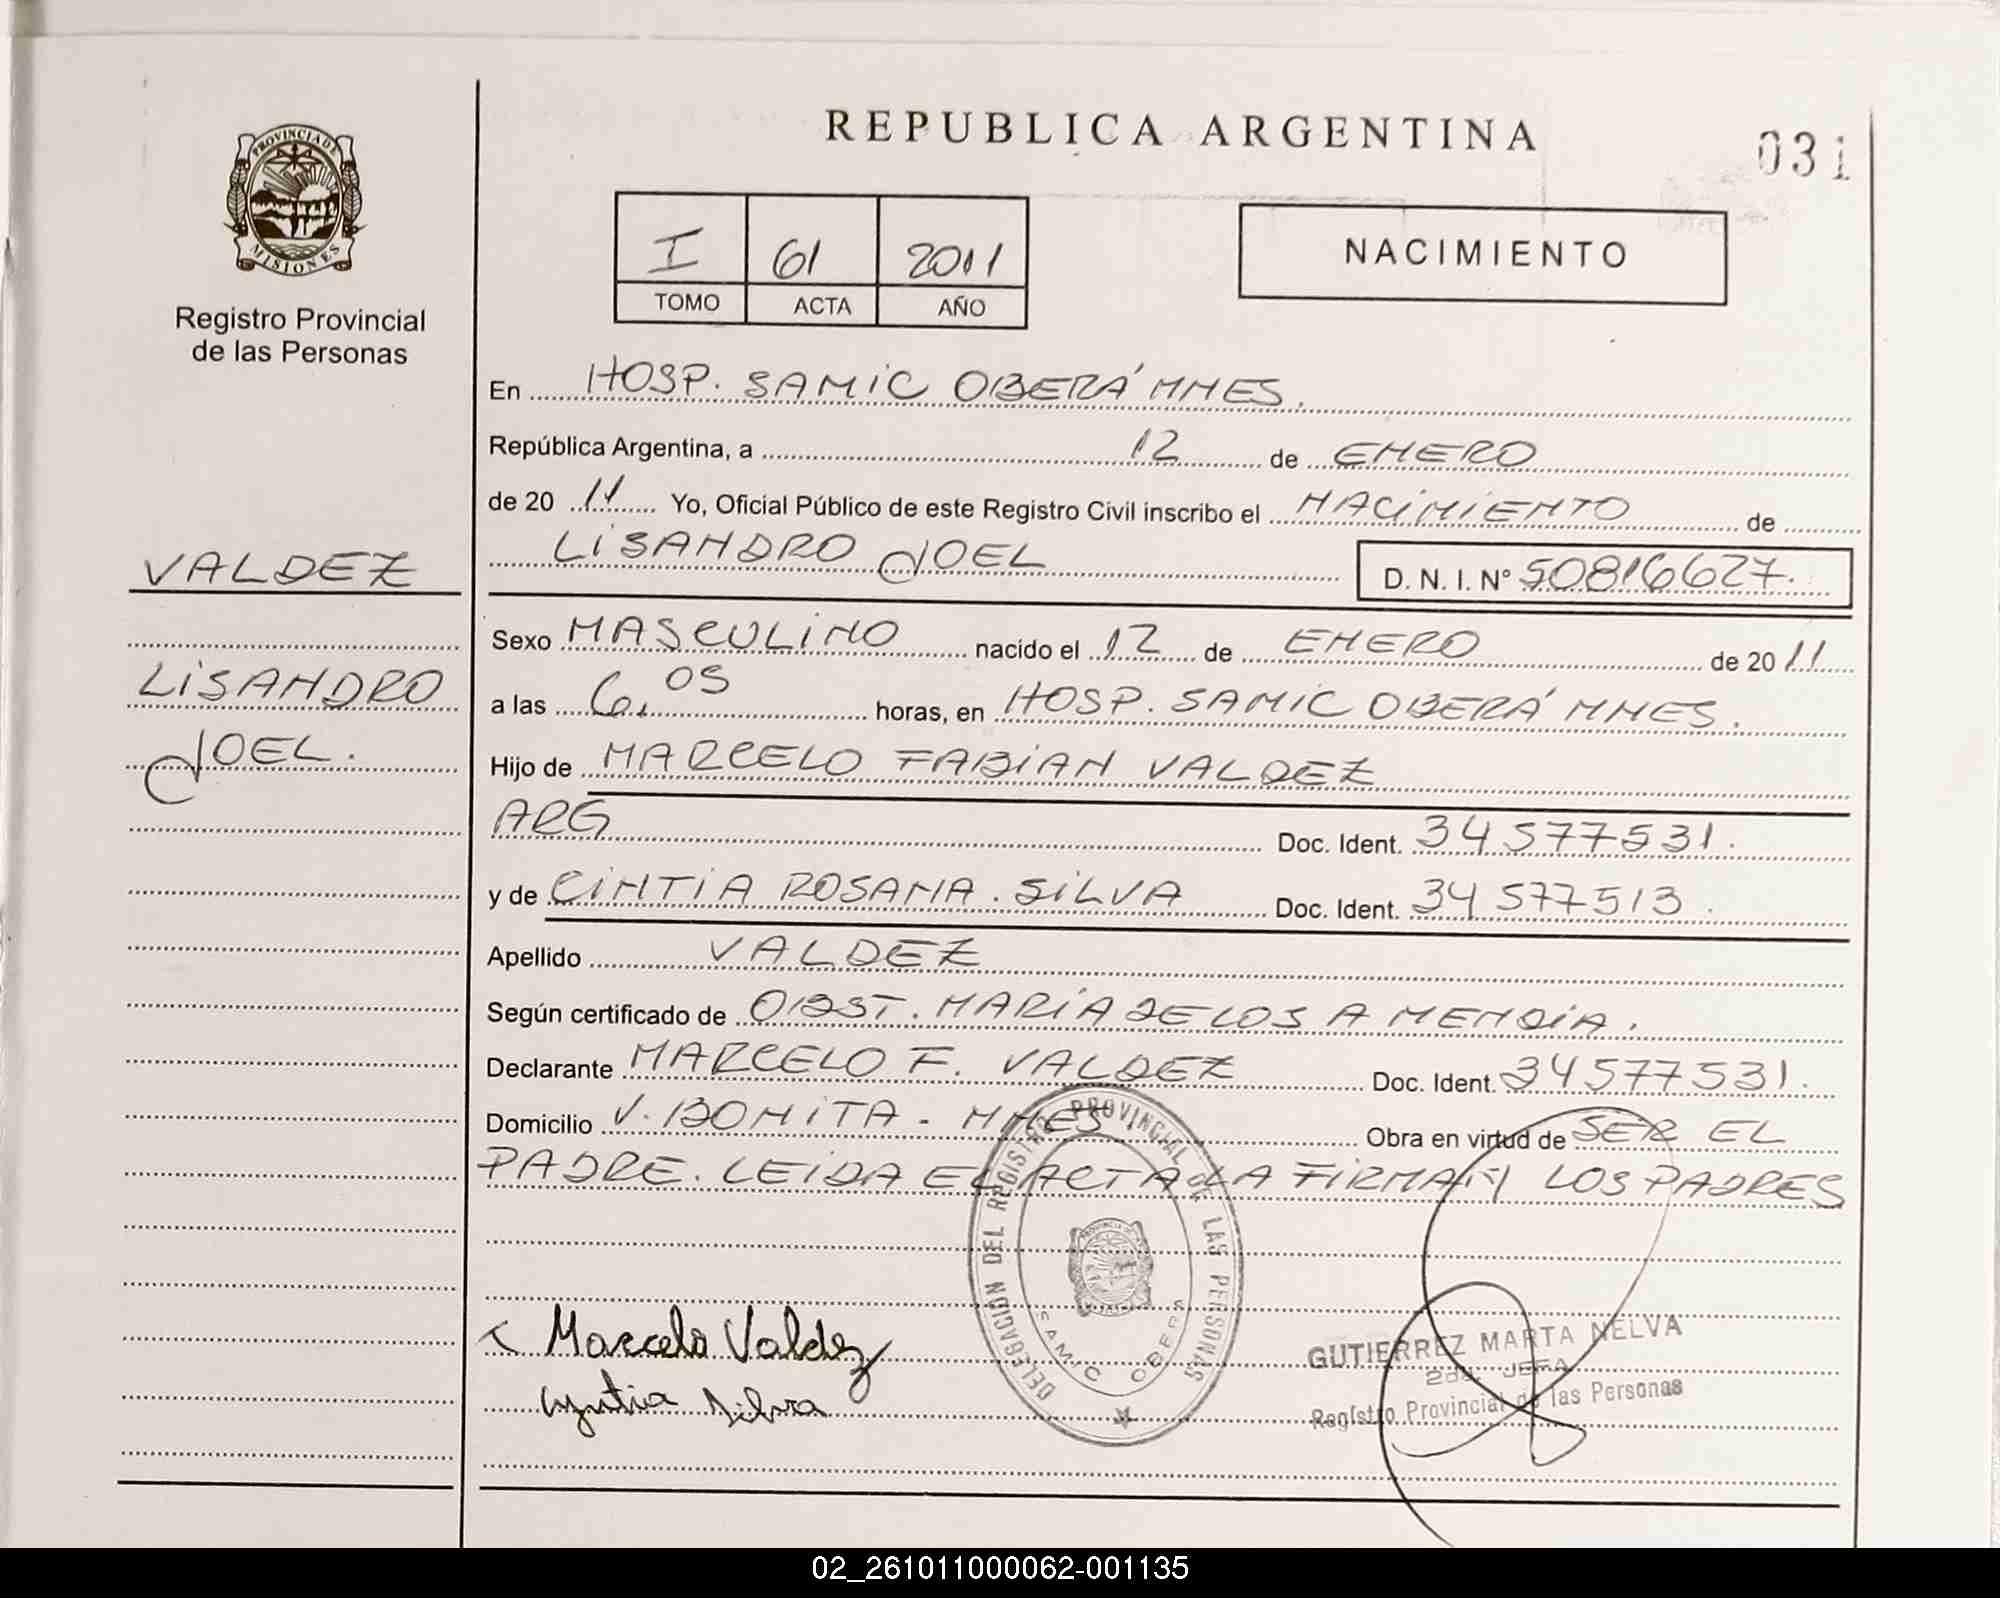 REPUBLICA ARGENTINA
031
PROVINCIA DE
MISIONES
Registro Provincial
de las Personas
I 61 2011
TOMO ACTA AÑO
NACIMIENTO
En HOSP. SAMIC OBERÁ MNES.
República Argentina, a 12 de ENERO
de 20 11 Yo, Oficial Público de este Registro Civil inscribo el NACIMIENTO de
LISANDRO JOEL D. N. I. Nº 50816627.
VALDEZ
LISANDRO
JOEL.
Sexo MASCULINO nacido el 12 de ENERO de 20 11
a las 6,05 horas, en HOSP. SAMIC OBERÁ MNES.
Hijo de MARCELO FABIAN VALDEZ
ARG Doc. Ident. 34577531.
y de CINTIA ROSANA. SILVA Doc. Ident. 34577513.
Apellido VALDEZ
Según certificado de OBST. MARIA DE LOS A MENDIA.
Declarante MARCELO F. VALDEZ Doc. Ident. 34577531.
Domicilio V. BONITA - MNES Obra en virtud de SER EL
PADRE. LEIDA EL ACTA LA FIRMAN LOS PADRES
Marcelo Valdez
Cyntia Silva
DELEGACIÓN DEL REGISTRO PROVINCIAL DE LAS PERSONAS
SAMIC OBERA
GUTIERREZ MARTA NELVA
2da. JEFA
Registro Provincial de las Personas
02_261011000062-001135